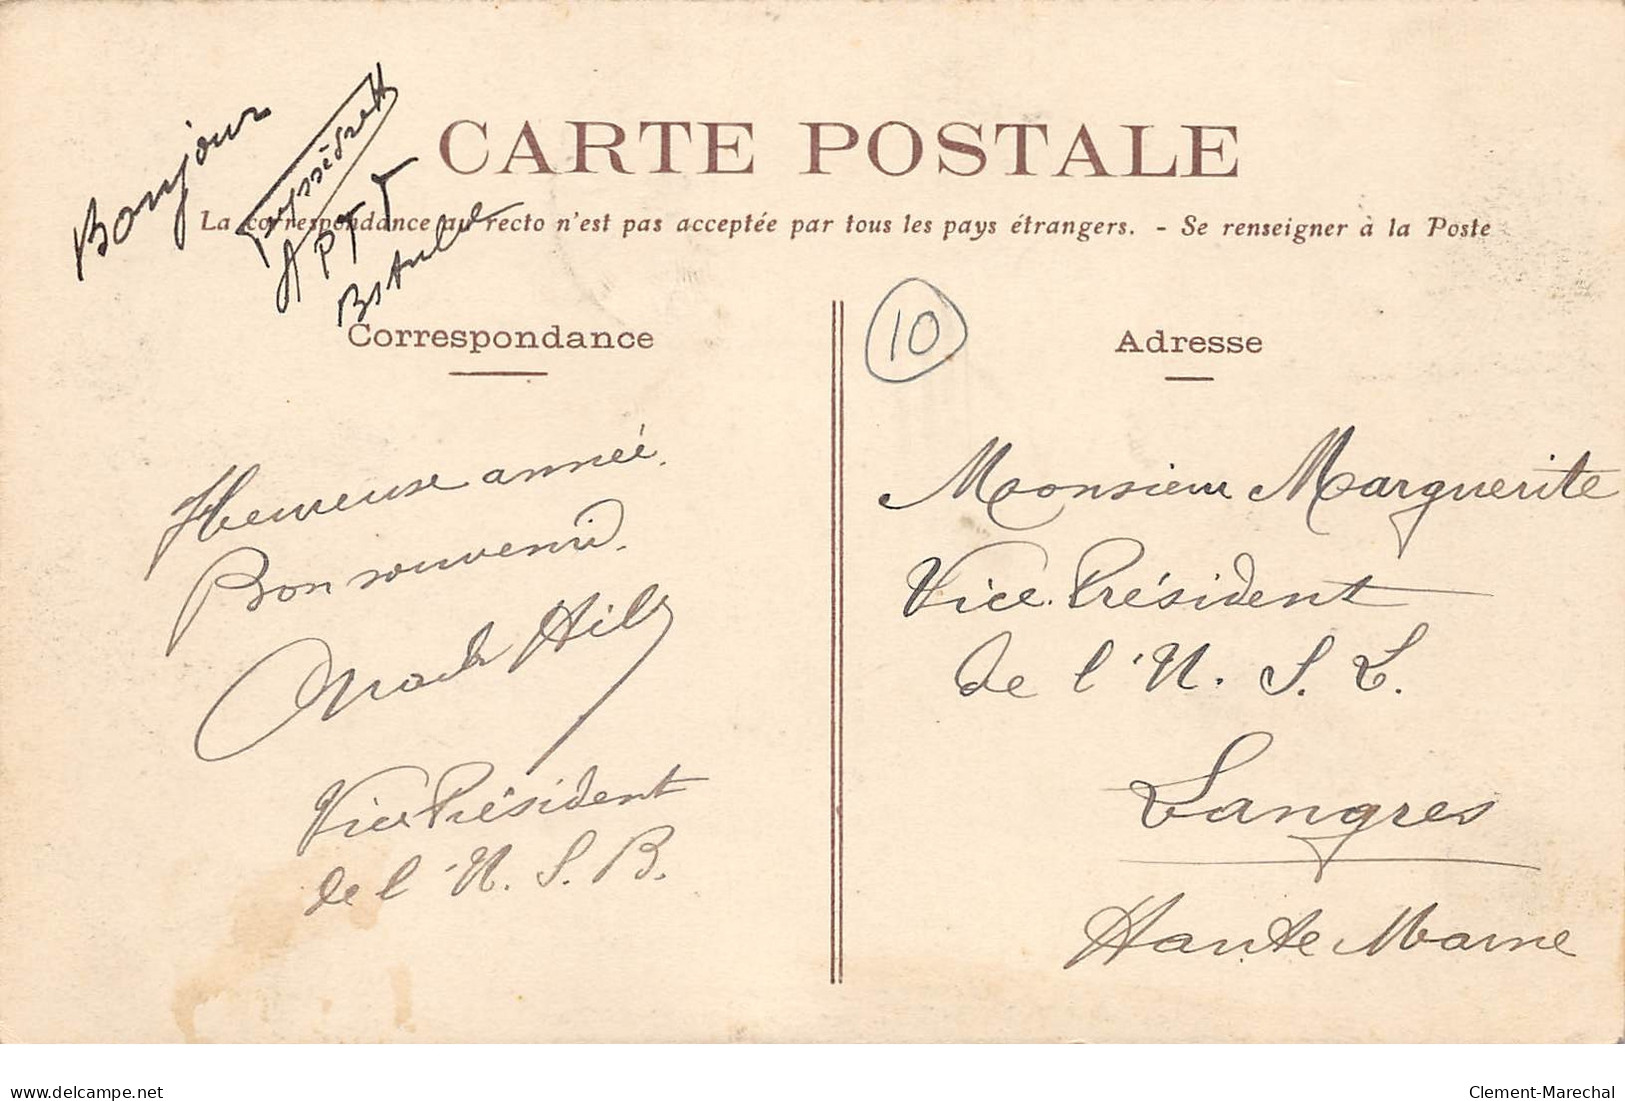 Bonjour
PTT
CARTE POSTALE
La correspondance au recto n'est pas acceptée par tous les pays étrangers. - Se renseigner à la Poste
Correspondance
Heureuse année.
Bon souvenir.
Vice Président
de l'U. S. B.
10
Adresse
Monsieur Marguerite
Vice-Président
de l'U. S. L.
Langres
Haute Marne
delcampe.net
Clement-Marechal